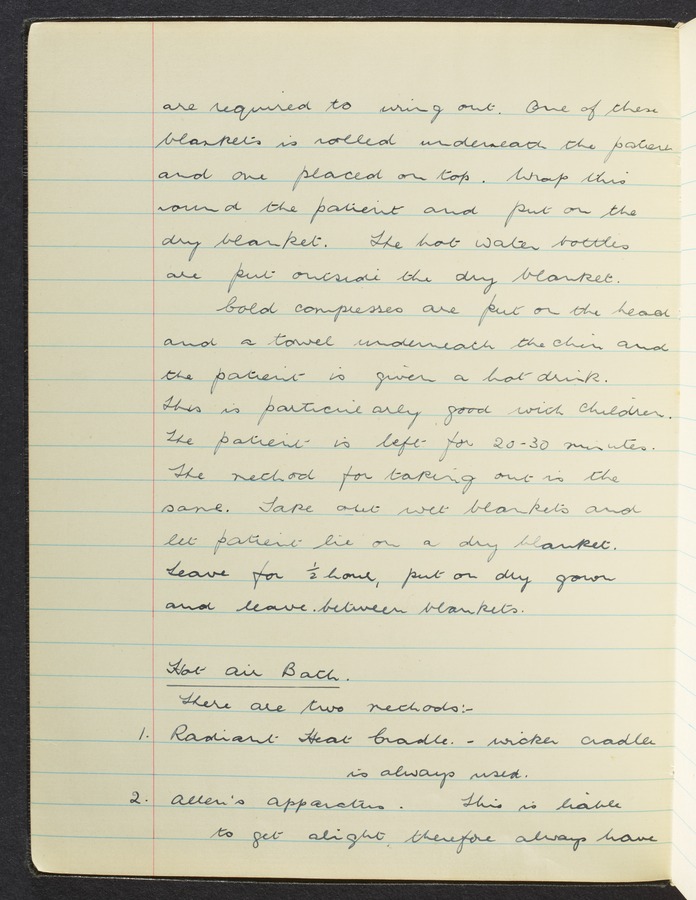 are required to wring out. One of these
blankets is rolled underneath the patient
and one placed on top. Wrap this
round the patient and put on the
dry blanket. The hot water bottles
are put outside the dry blanket.
Cold compresses are put on the head
and a towel underneath the chin and
the patient is given a hot drink.
This is particularly good with children.
The patient is left for 20-30 minutes.
The method for taking out is the
same. Take out wet blankets and
let patient lie on a dry blanket.
Leave for ½ hour, put on dry gown
and leave between blankets.
Hot Air Bath.
There are two methods:-
1. Radiant Heat Cradle. - wicker cradle
is always used.
2. Allen's apparatus. This is liable
to get alight, therefore always have